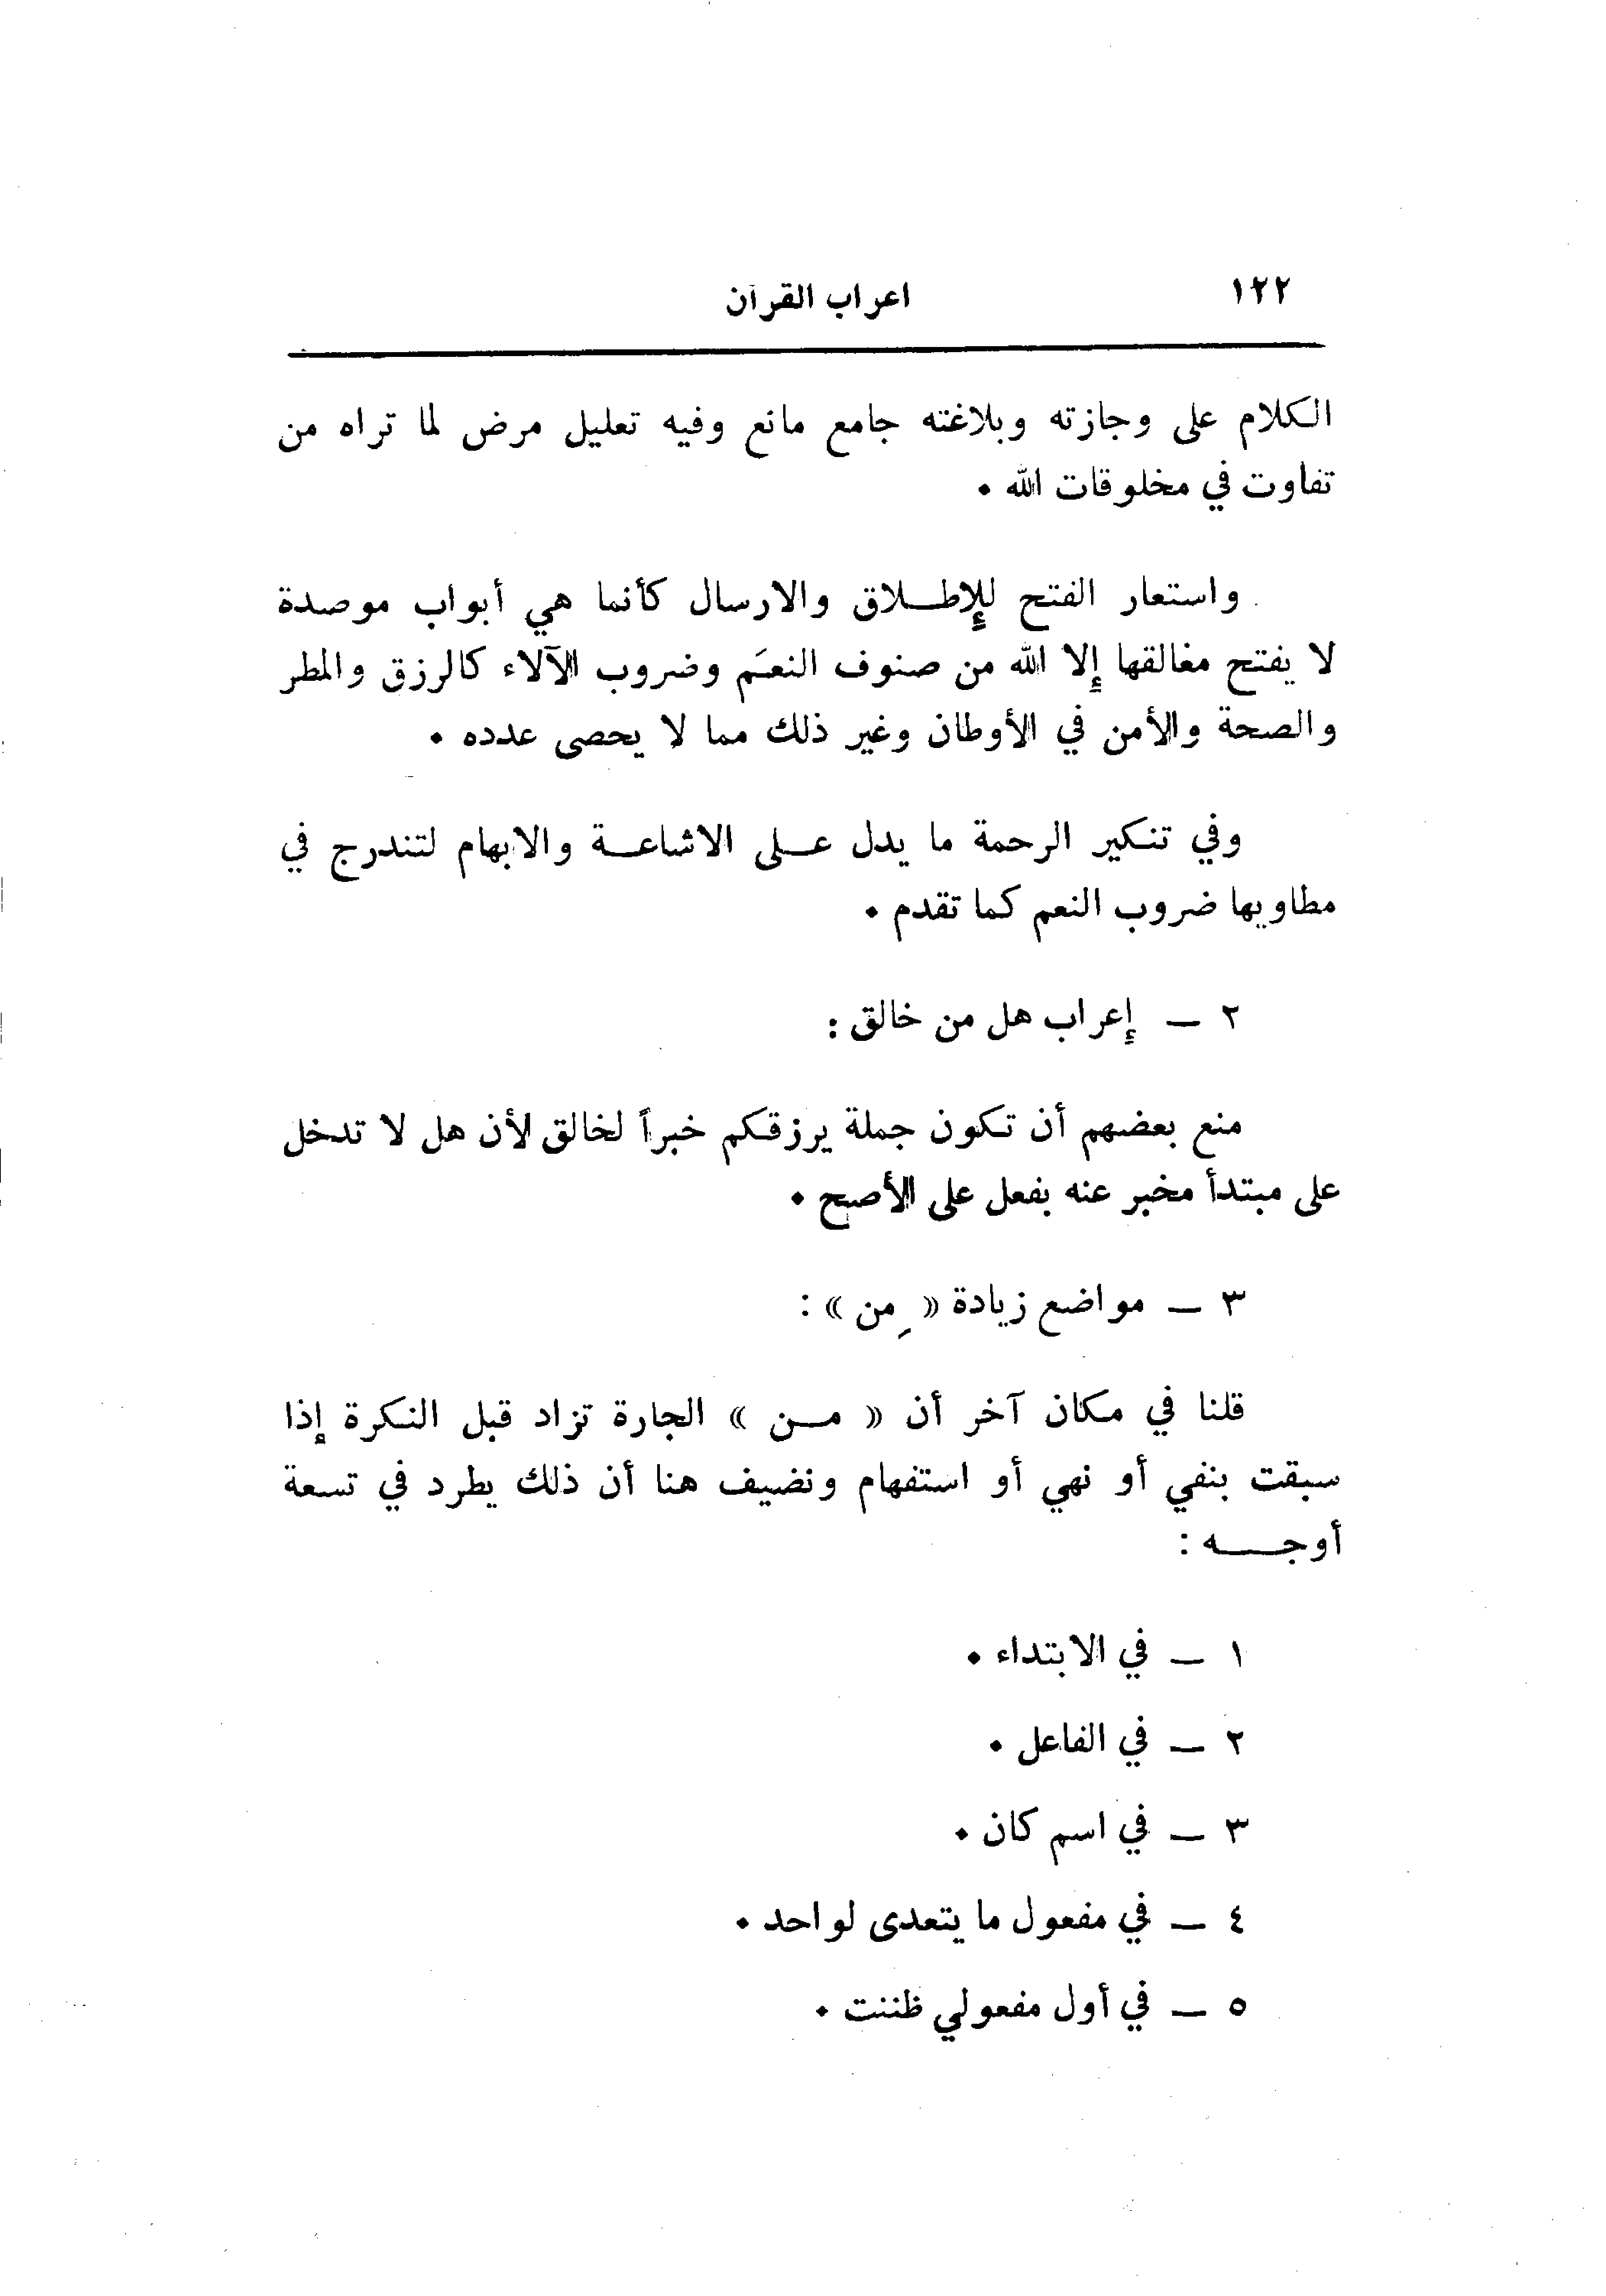 ١٢٢
اعراب القرآن
الكلام على وجازته وبلاغته جامع مانع وفيه تعليل مرض لما تراه من
تفاوت في مخلوقات الله .
واستعار الفتح للإطلاق والارسال كأنما هي أبواب موصدة
لا يفتح مغالقها إلا الله من صنوف النعَم وضروب الآلاء كالرزق والمطر
والصحة والأمن في الأوطان وغير ذلك مما لا يحصى عدده .
وفي تنكير الرحمة ما يدل على الاشاعة والابهام لتندرج في
مطاويها ضروب النعم كما تقدم .
٢ ـ إعراب هل من خالق :
منع بعضهم أن تكون جملة يرزقكم خبراً لخالق لأن هل لا تدخل
على مبتدأ مخبر عنه بفعل على الأصح .
٣ ـ مواضع زيادة « مِن » :
قلنا في مكان آخر أن « من » الجارة تزاد قبل النكرة إذا
سبقت بنفي أو نهي أو استفهام ونضيف هنا أن ذلك يطرد في تسعة
أوجه :
١ ـ في الابتداء .
٢ ـ في الفاعل .
٣ ـ في اسم كان .
٤ ـ في مفعول ما يتعدى لواحد .
٥ ـ في أول مفعولي ظننت .